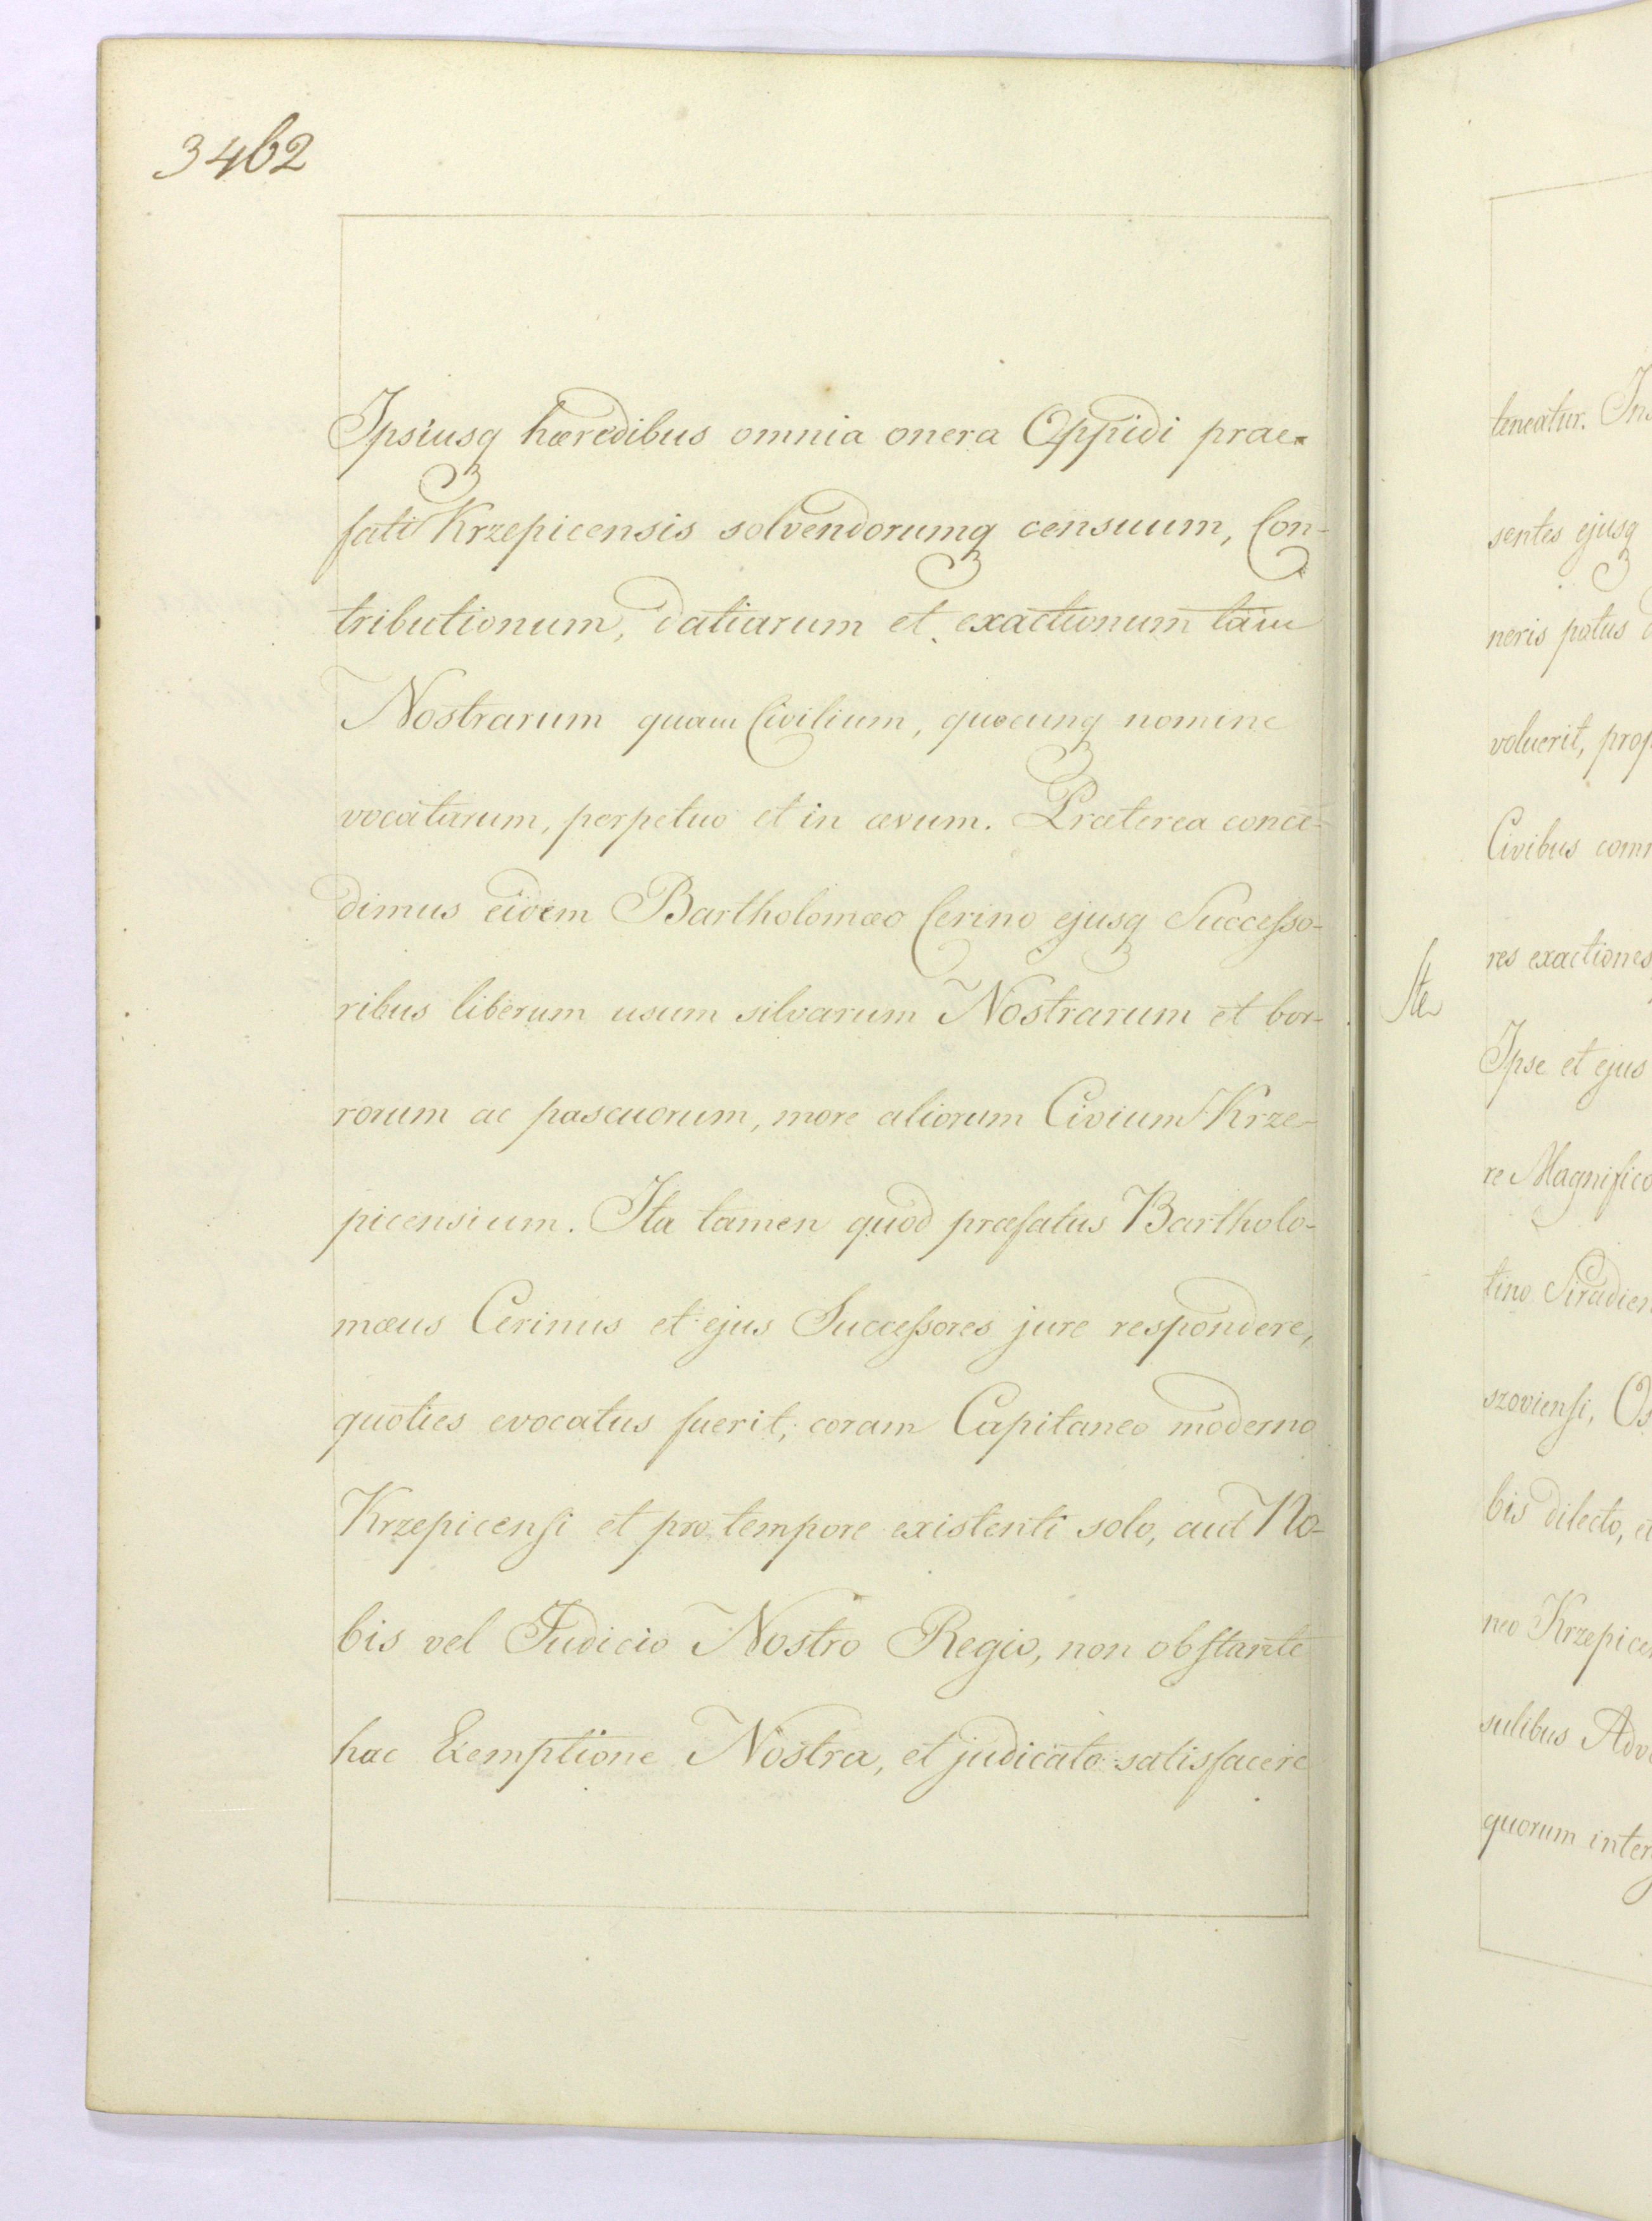 3462
Ipsiusq hæredibus omnia onera Oppidi prae-
fati Krzepicensis solvendorumq censuum, Con-
tributionum, datiarum et exactionum tam
Nostrarum quam Civilium, quocunq nomine
vocatarum, perpetuo et in ævum. Præterea conce-
dimus eidem Bartholomæo Cerino ejusq Successo-
ribus liberum usum silvarum Nostrarum et bor-
rorum ac pascuorum, more aliorum Civium Krze-
picensium. Ita tamen quod præfatus Bartholo-
mæus Cerinus et ejus Successores jure respondere,
quoties evocatus fuerit, coram Capitaneo moderno
Krzepicensi et pro tempore existenti solo, aut No-
bis vel Judicio Nostro Regio, non obstante
hac Exemptione Nostra, et judicato satisfacere
teneatur.
sentes ejusq
neris potus
voluerit,
Civibus
res exactiones
Ipse et ejus
re Magnifico
tino
szoviensi,
bis dilecto, et
neo
sulibus
quorum